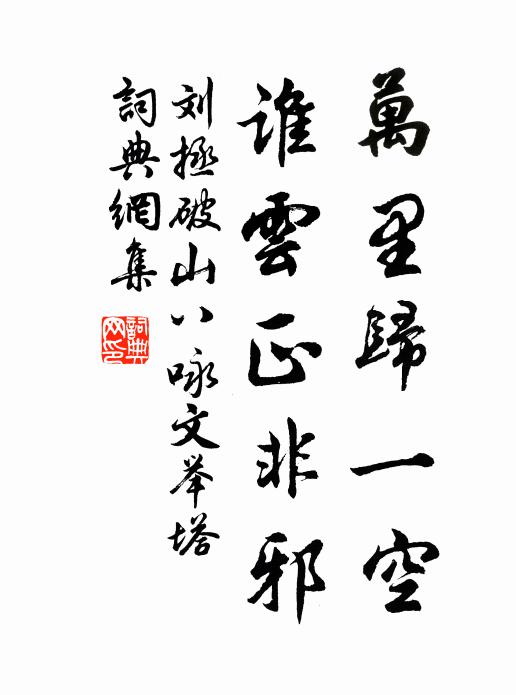 萬里歸一空
誰雲正非邪
刘拯破山八咏文举塔
詞典網集
詞典網印